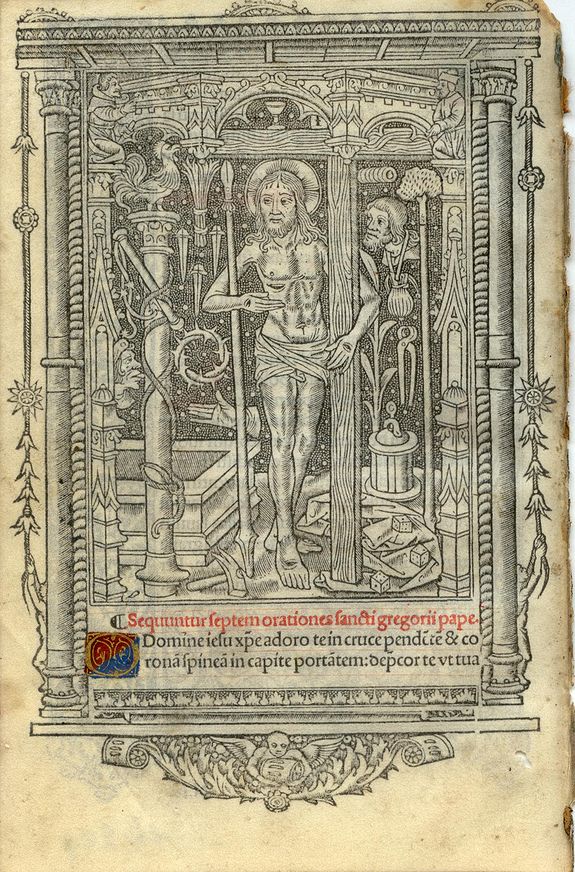 ¶ Sequuntur septem orationes sancti gregorii pape.
O Domine iesu xp̄e adoro te in cruce pendētē & co
ronā spineā in capite portātem: depcor te vt tua